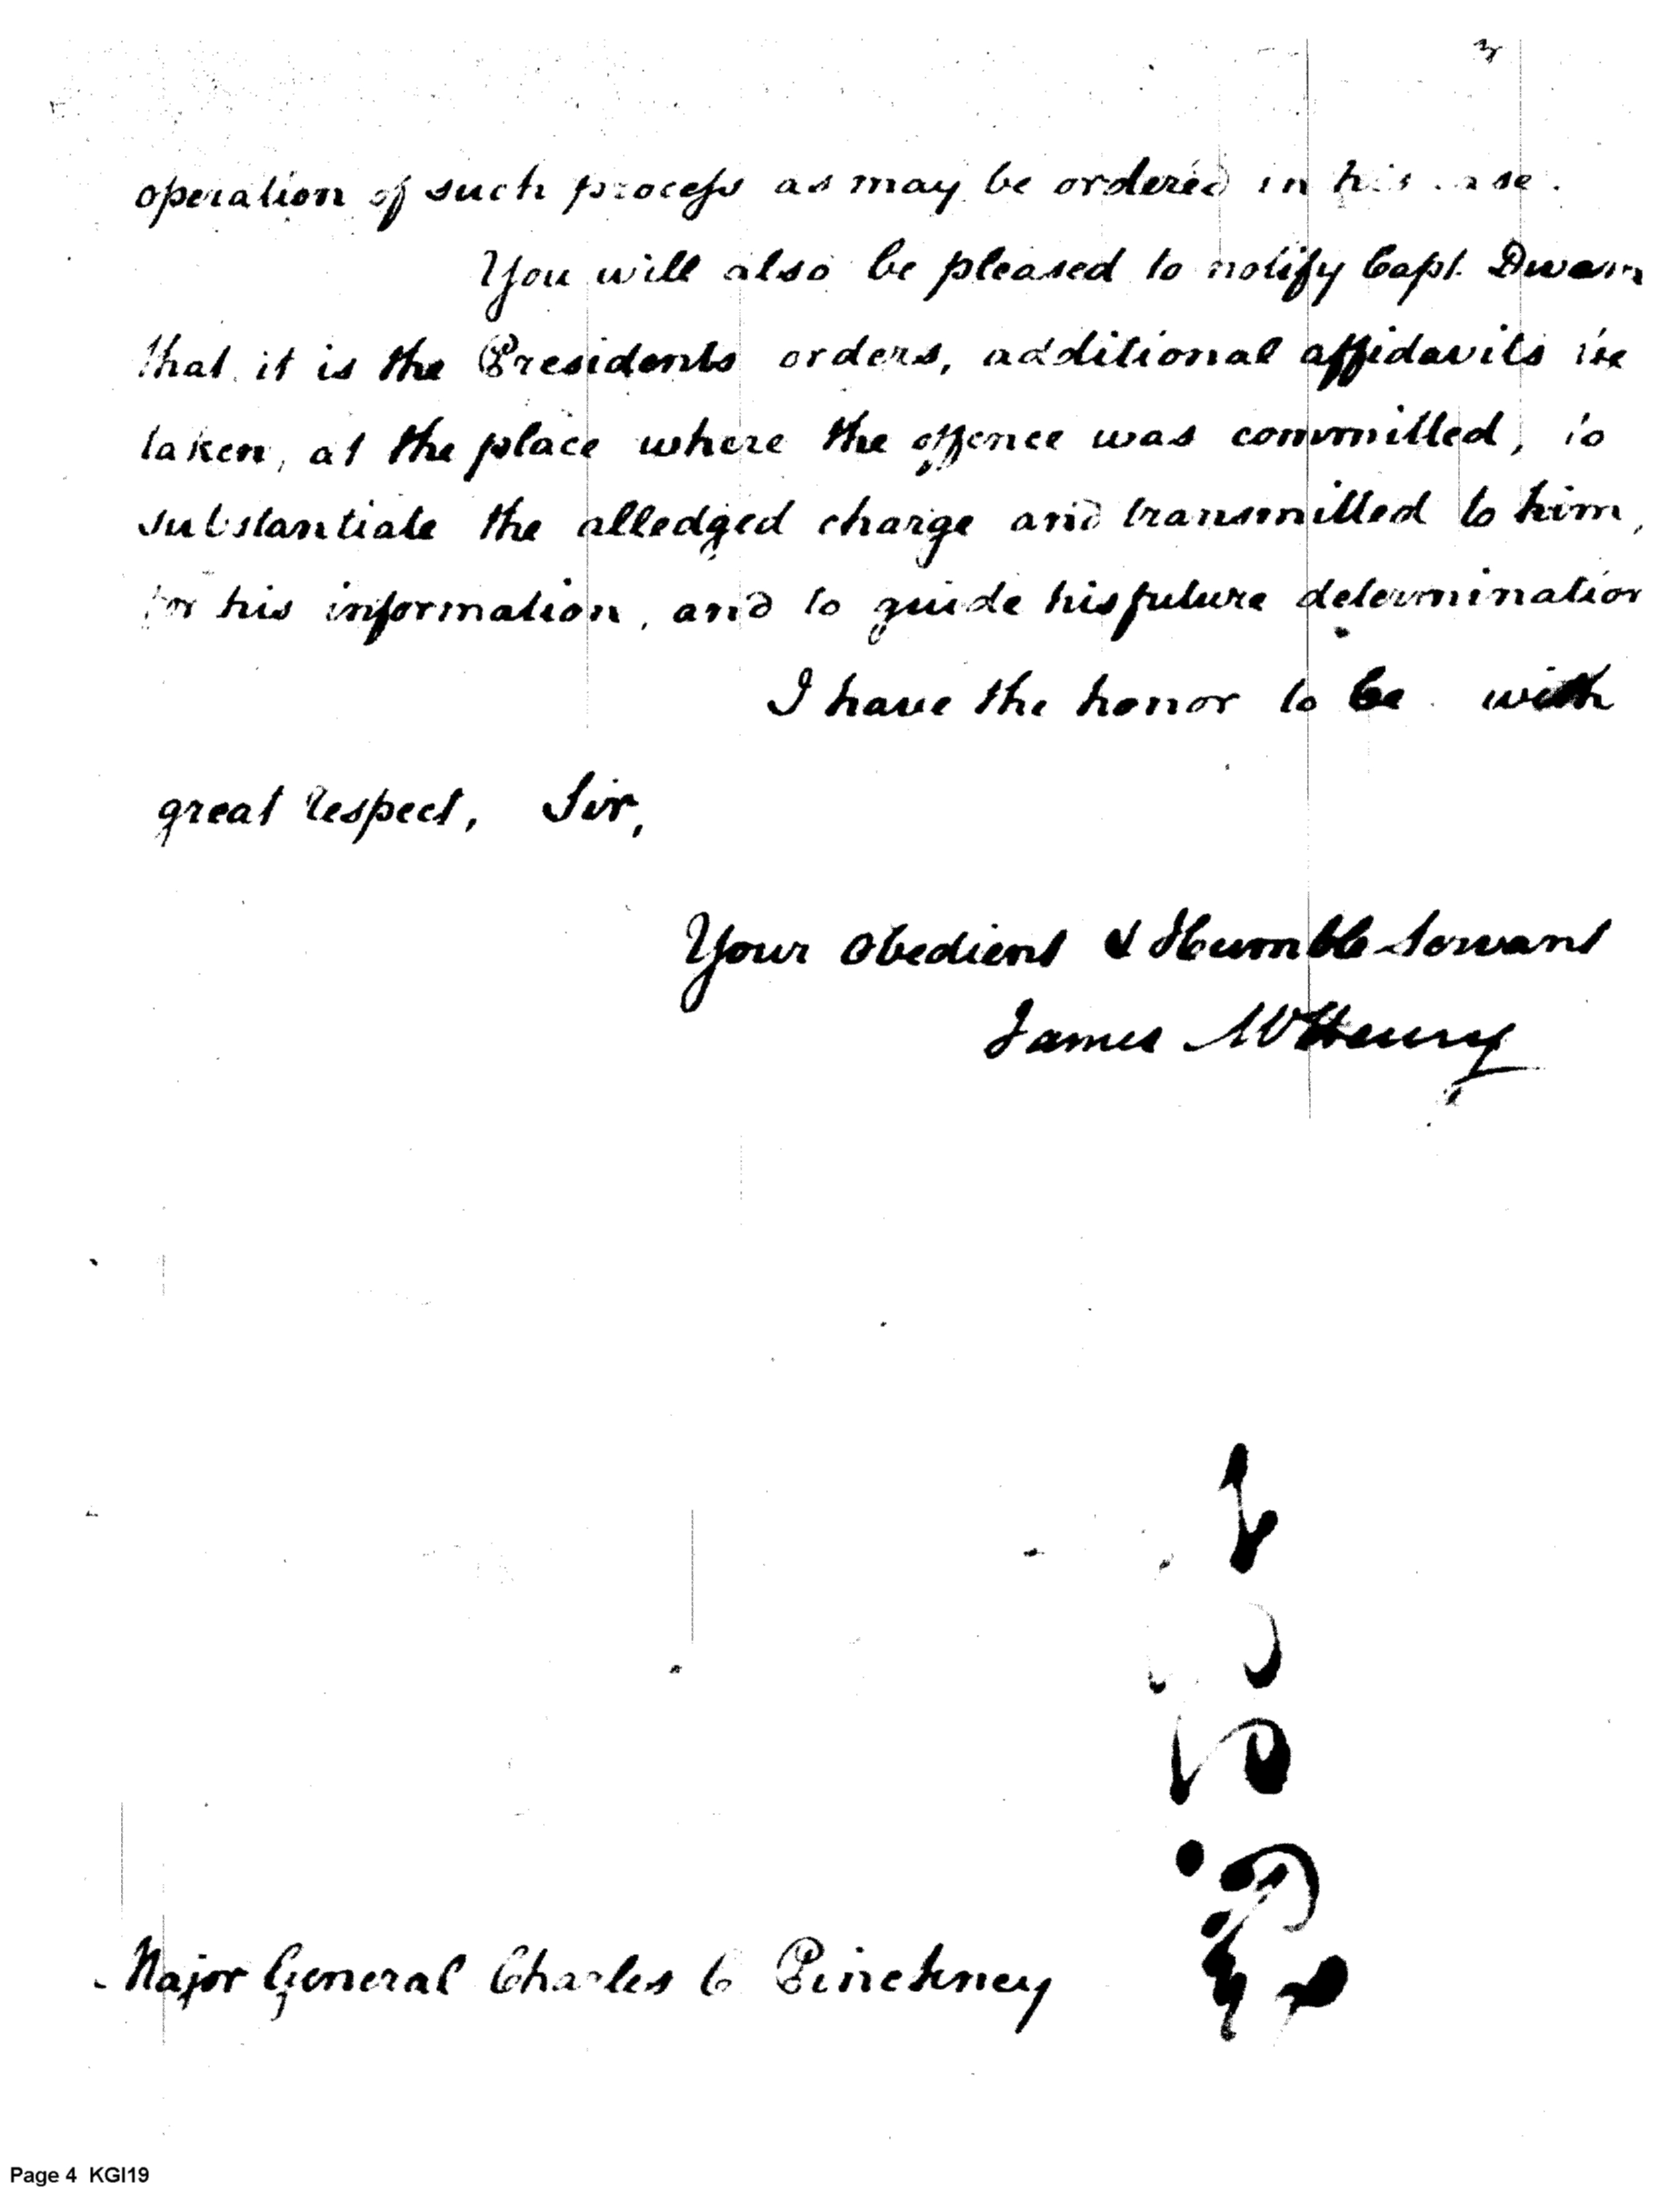 operation of such process as may be ordered in his case.
You will also be pleased to notify Capt. 
that it is the Presidents orders, additional affidavits be
taken, at the place where the offence was committed, to
substantiate the alledged charge and transmitted to him,
for his information, and to guide his future determination
I have the honor to be with
great respect, Sir,
Your Obedient & Humble Servant
James McHenry
Major General Charles C Pinckney
Page 4 KGI19